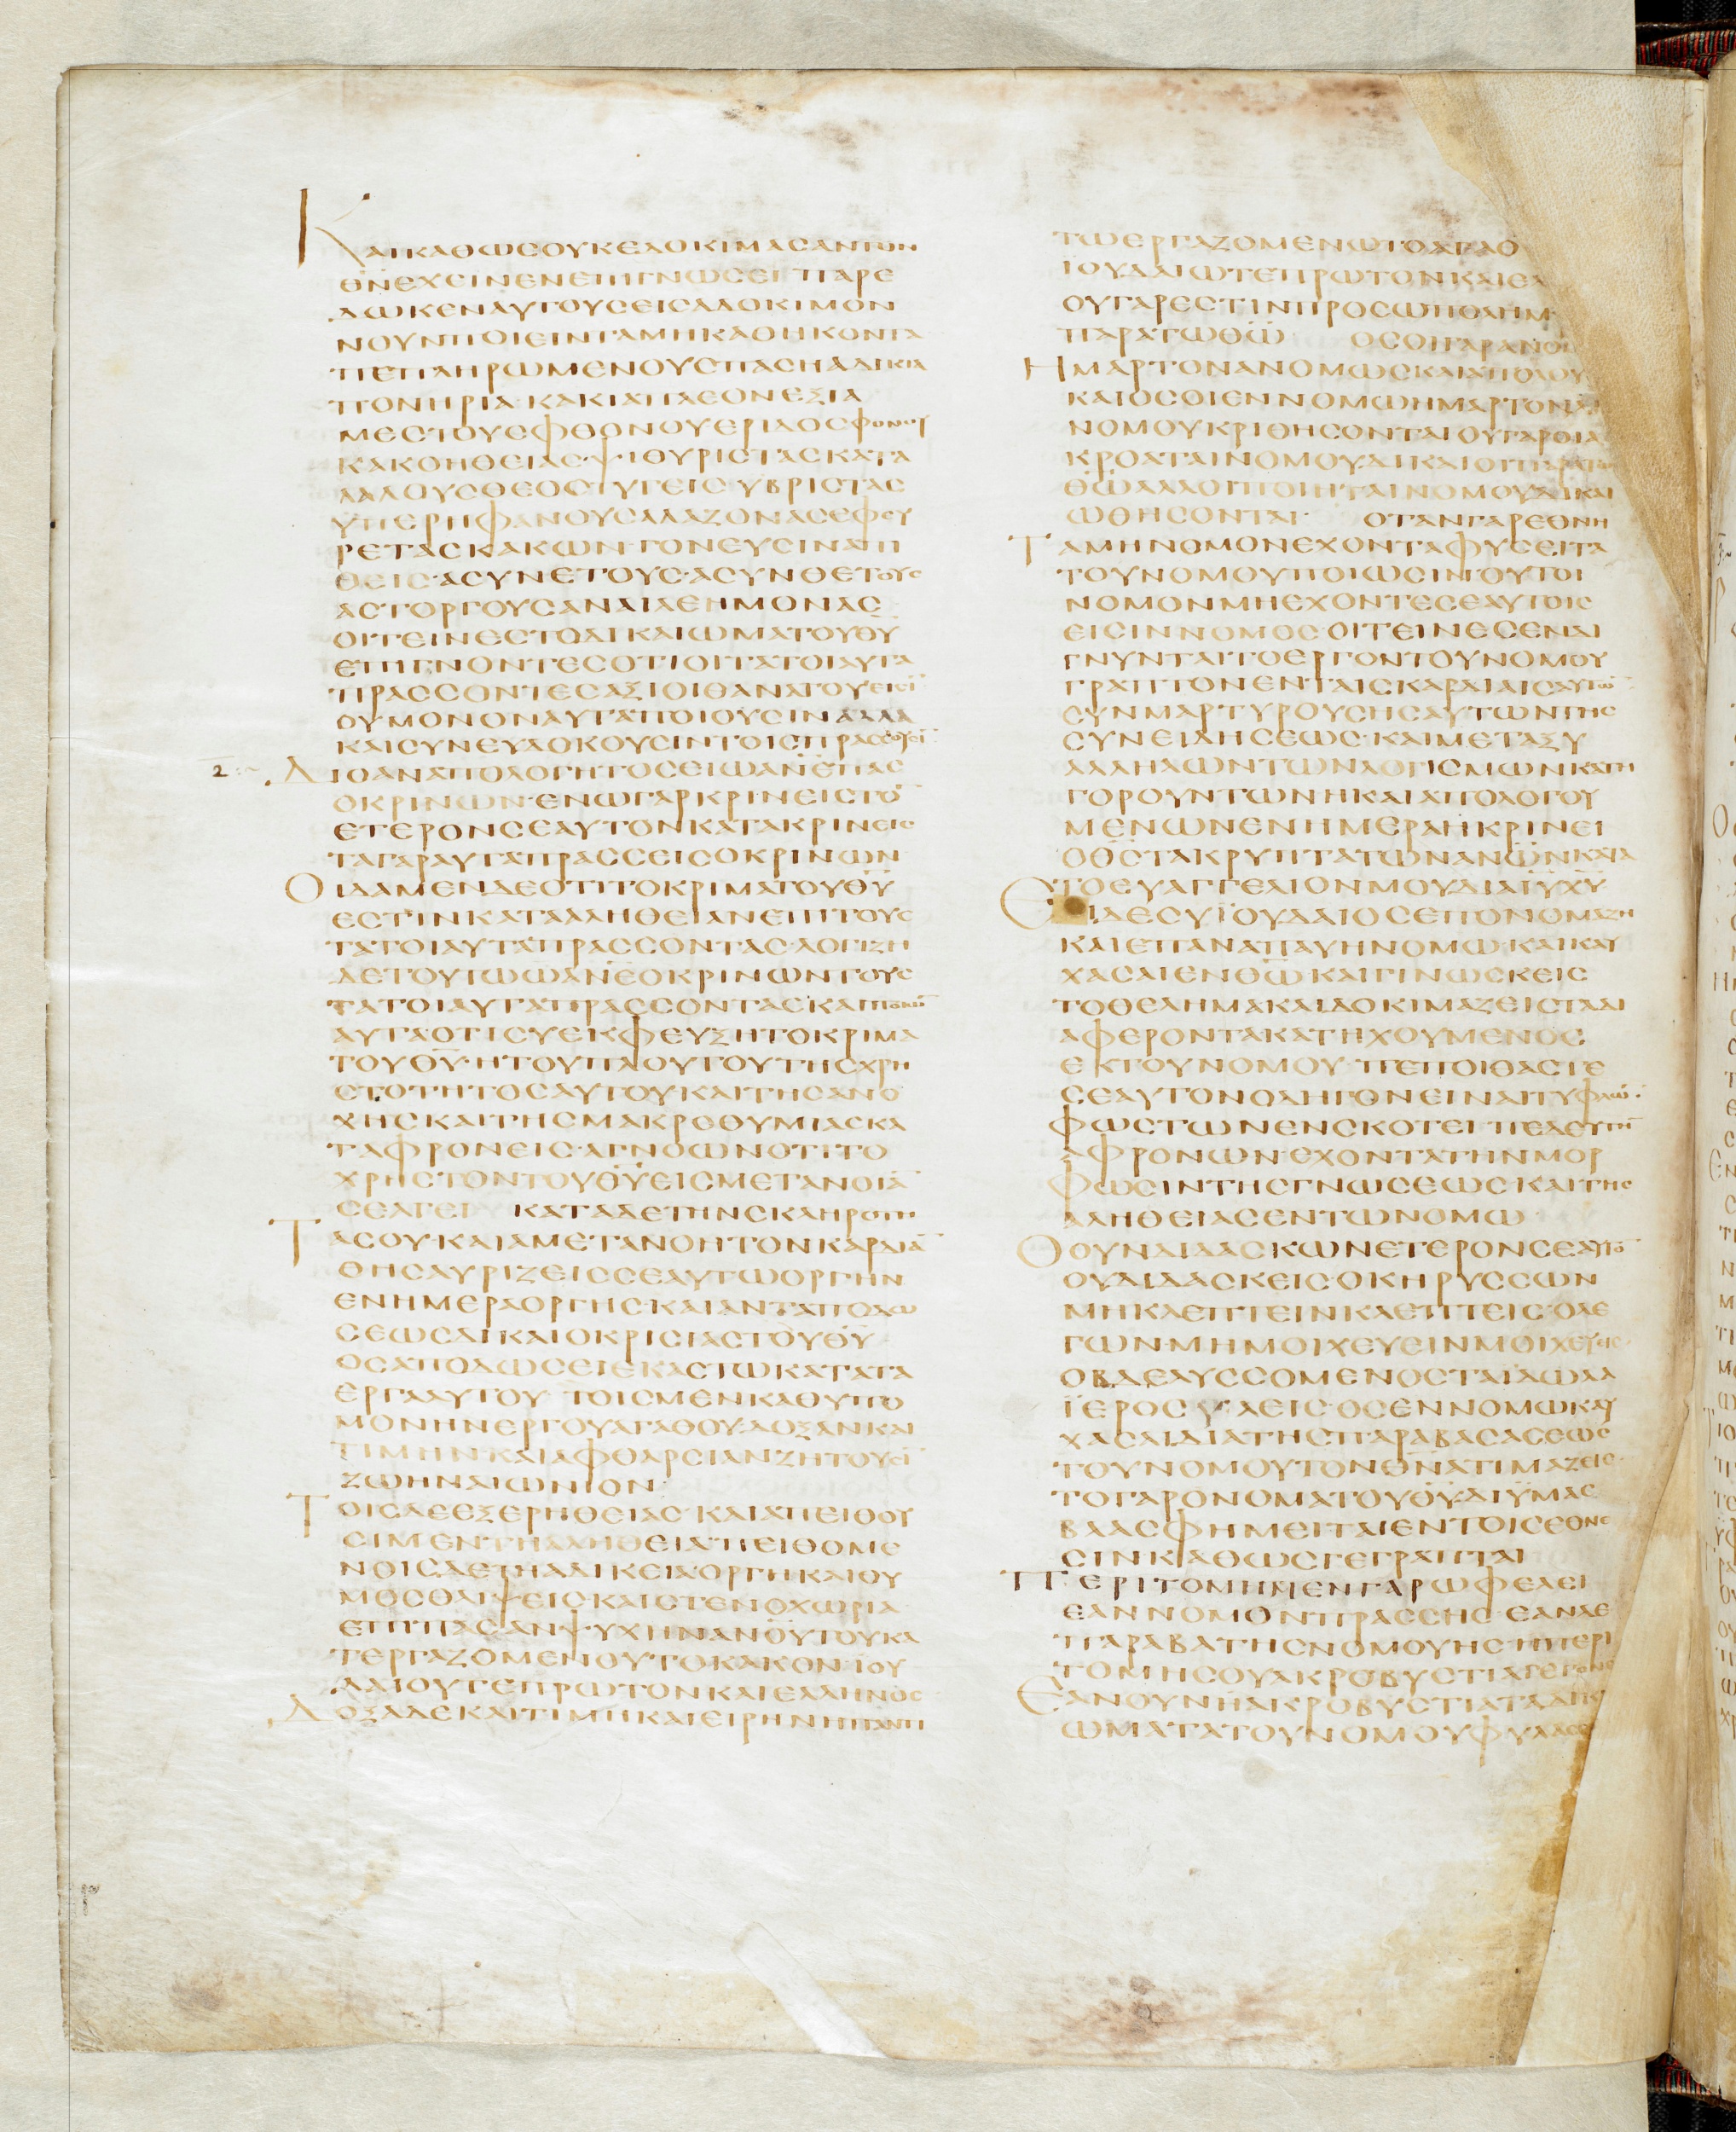 ΚΑΙΚΑΘΩϹΟΥΚΕΔΟΚΙΜΑϹΑΝΤΟΝ
Θ̅Ν̅ΕΧΕΙΝΕΝΕΠΙΓΝΩϹΕΙ ΠΑΡΕ
ΔΩΚΕΝΑΥΤΟΥϹΕΙϹΑΔΟΚΙΜΟΝ
ΝΟΥΝΠΟΙΕΙΝΤΑΜΗΚΑΘΗΚΟΝΤΑ
ΠΕΠΛΗΡΩΜΕΝΟΥϹΠΑϹΗΑΔΙΚΙΑ
ΠΟΝΗΡΙΑ·ΚΑΚΙΑΠΛΕΟΝΕΞΙΑ
ΜΕϹΤΟΥϹΦΘΟΝΟΥΕΡΙΔΟϹΦΟΝΟΥ
ΚΑΚΟΗΘΕΙΑϹ·ΨΙΘΥΡΙϹΤΑϹΚΑΤΑ
ΛΑΛΟΥϹΘΕΟϹΤΥΓΕΙϹ·ΥΒΡΙϹΤΑϹ
ΥΠΕΡΗΦΑΝΟΥϹΑΛΑΖΟΝΑϹΕΦΟΥ
ΡΕΤΑϹΚΑΚΩΝ·ΓΟΝΕΥϹΙΝΑΠΙ
ΘΕΙϹ·ΑϹΥΝΕΤΟΥϹ·ΑϹΥΝΘΕΤΟΥϹ
ΑϹΤΟΡΓΟΥϹΑΝΑΙΛΕΗΜΟΝΑϹ
ΟΙΤΕΙΝΕϹΤΟΔΙΚΑΙΩΜΑΤΟΥΘ̅Υ̅
ΕΠΙΓΝΟΝΤΕϹΟΤΙΟΙΤΑΤΟΙΑΥΤΑ
ΠΡΑϹϹΟΝΤΕϹΑΞΙΟΙΘΑΝΑΤΟΥΕΙϹΙ̅
ΟΥΜΟΝΟΝΑΥΤΑΠΟΙΟΥϹΙΝΑΛΛΑ
ΚΑΙϹΥΝΕΥΔΟΚΟΥϹΙΝΤΟΙϹΠΡΑϹϹΟΥϹΙ̅
2 ΔΙΟΑΝΑΠΟΛΟΓΗΤΟϹΕΙΩΑΝ̅Ε̅ΠΑϹ
ΟΚΡΙΝΩΝ·ΕΝΩΓΑΡΚΡΙΝΕΙϹΤΟ̅
ΕΤΕΡΟΝϹΕΑΥΤΟΝΚΑΤΑΚΡΙΝΕΙϹ
ΤΑΓΑΡΑΥΤΑΠΡΑϹϹΕΙϹΟΚΡΙΝΩΝ
ΟΙΔΑΜΕΝΔΕΟΤΙΤΟΚΡΙΜΑΤΟΥΘ̅Υ̅
ΕϹΤΙΝΚΑΤΑΑΛΗΘΕΙΑΝΕΠΙΤΟΥϹ
ΤΑΤΟΙΑΥΤΑΠΡΑϹϹΟΝΤΑϹ·ΛΟΓΙΖΗ
ΔΕΤΟΥΤΩΩΑΝ̅Ε̅ΟΚΡΙΝΩΝΤΟΥϹ
ΤΑΤΟΙΑΥΤΑΠΡΑϹϹΟΝΤΑϹΚΑΙΠΟΙΩ̅
ΑΥΤΑΟΤΙϹΥΕΚΦΕΥΞΗΤΟΚΡΙΜΑ
ΤΟΥΘ̅Υ̅·ΗΤΟΥΠΛΟΥΤΟΥΤΗϹΧΡΗ
ϹΤΟΤΗΤΟϹΑΥΤΟΥΚΑΙΤΗϹΑΝΟ
ΧΗϹΚΑΙΤΗϹΜΑΚΡΟΘΥΜΙΑϹΚΑ
ΤΑΦΡΟΝΕΙϹ·ΑΓΝΟΩΝΟΤΙΤΟ
ΧΡΗϹΤΟΝΤΟΥΘ̅Υ̅ΕΙϹΜΕΤΑΝΟΙΑ̅
ϹΕΑΓΕΙ ΚΑΤΑΔΕΤΗΝϹΚΛΗΡΟΤΗ
ΤΑϹΟΥ·ΚΑΙΑΜΕΤΑΝΟΗΤΟΝΚΑΡΔΙΑ̅
ΘΗϹΑΥΡΙΖΕΙϹϹΕΑΥΤΩΟΡΓΗΝ
ΕΝΗΜΕΡΑΟΡΓΗϹΚΑΙΑΝΤΑΠΟΔΩ
ϹΕΩϹΔΙΚΑΙΟΚΡΙϹΙΑϹΤΟΥΘ̅Υ̅
ΟϹΑΠΟΔΩϹΕΙΕΚΑϹΤΩΚΑΤΑΤΑ
ΕΡΓΑΑΥΤΟΥ ΤΟΙϹΜΕΝΚΑΘΥΠΟ
ΜΟΝΗΝΕΡΓΟΥΑΓΑΘΟΥ·ΔΟΞΑΝΚΑΙ
ΤΙΜΗΝΚΑΙΑΦΘΑΡϹΙΑΝΖΗΤΟΥϹΙ̅
ΖΩΗΝΑΙΩΝΙΟΝ
ΤΟΙϹΔΕΕΞΕΡΗΘΕΙΑϹ·ΚΑΙΑΠΕΙΘΟΥ
ϹΙΜΕΝΤΗΑΛΗΘΕΙΑΠΕΙΘΟΜΕ
ΝΟΙϹΔΕΤΗΑΔΙΚΕΙΑΟΡΓΗΚΑΙΘΥ
ΜΟϹΘΛΙΨΕΙϹ·ΚΑΙϹΤΕΝΟΧΩΡΙΑ
ΕΠΙΠΑϹΑΝΨΥΧΗΝΑΝ̅Ο̅Υ̅ΤΟΥΚΑ
ΤΕΡΓΑΖΟΜΕΝΟΥΤΟΚΑΚΟΝ·ΙΟΥ
ΔΑΙΟΥΤΕΠΡΩΤΟΝΚΑΙΕΛΛΗΝΟϹ
ΔΟΞΑΔΕΚΑΙΤΙΜΗΚΑΙΕΙΡΗΝΗΠΑΝΤΙ
ΤΩΕΡΓΑΖΟΜΕΝΩΤΟΑΓΑΘΟ
ΙΟΥΔΑΙΩΤΕΠΡΩΤΟΝΚΑΙΕΛ
ΟΥΓΑΡΕϹΤΙΝΠΡΟϹΩΠΟΛΗΜ
ΠΑΡΑΤΩΘ̅Ω̅ ΟϹΟΙΓΑΡΑΝΟΜ
ΗΜΑΡΤΟΝΑΝΟΜΩϹΚΑΙΑΠΟΛΟΥ
ΚΑΙΟϹΟΙΕΝΝΟΜΩΗΜΑΡΤΟΝΔΙΑ
ΝΟΜΟΥΚΡΙΘΗϹΟΝΤΑΙΟΥΓΑΡΟΙΑ
ΚΡΟΑΤΑΙΝΟΜΟΥΔΙΚΑΙΟΙΠΑΡΑΤΩ
Θ̅Ω̅ΑΛΛΟΙΠΟΙΗΤΑΙΝΟΜΟΥΔΙΚΑΙ
ΩΘΗϹΟΝΤΑΙ· ΟΤΑΝΓΑΡΕΘΝΗ
ΤΑΜΗΝΟΜΟΝΕΧΟΝΤΑΦΥϹΕΙΤΑ
ΤΟΥΝΟΜΟΥΠΟΙΩϹΙΝΟΥΤΟΙ
ΝΟΜΟΝΜΗΕΧΟΝΤΕϹΕΑΥΤΟΙϹ
ΕΙϹΙΝΝΟΜΟϹ·ΟΙΤΕΙΝΕϹΕΝΔΙ
ΓΝΥΝΤΑΙΤΟΕΡΓΟΝΤΟΥΝΟΜΟΥ
ΓΡΑΠΤΟΝΕΝΤΑΙϹΚΑΡΔΙΑΙϹΑΥΤΩ̅
ϹΥΝΜΑΡΤΥΡΟΥϹΗϹΑΥΤΩΝΤΗϹ
ϹΥΝΕΙΔΗϹΕΩϹ·ΚΑΙΜΕΤΑΞΥ
ΑΛΛΗΛΩΝΤΩΝΛΟΓΙϹΜΩΝΚΑΤΗ
ΓΟΡΟΥΝΤΩΝΗΚΑΙΑΠΟΛΟΓΟΥ
ΜΕΝΩΝΕΝΗΜΕΡΑΗΚΡΙΝΕΙ
ΟΘ̅Ϲ̅ΤΑΚΡΥΠΤΑΤΩΝΑΝ̅Ω̅Ν̅ΚΑΤΑ
ΤΟΕΥΑΓΓΕΛΙΟΝΜΟΥΔΙΑΙ̅Υ̅Χ̅Υ̅
ΕΙΔΕϹΥΙΟΥΔΑΙΟϹΕΠΟΝΟΜΑΖΗ
ΚΑΙΕΠΑΝΑΠΑΥΗΝΟΜΩ·ΚΑΙΚΑΥ
ΧΑϹΑΙΕΝΘ̅Ω̅ΚΑΙΓΙΝΩϹΚΕΙϹ
ΤΟΘΕΛΗΜΑΚΑΙΔΟΚΙΜΑΖΕΙϹΤΑΔΙ
ΑΦΕΡΟΝΤΑΚΑΤΗΧΟΥΜΕΝΟϹ
ΕΚΤΟΥΝΟΜΟΥ·ΠΕΠΟΙΘΑϹΤΕ
ϹΕΑΥΤΟΝΟΔΗΓΟΝΕΙΝΑΙΤΥΦΛΩ̅·
ΦΩϹΤΩΝΕΝϹΚΟΤΕΙ ΠΕΔΕΥΤΗ̅
ΑΦΡΟΝΩΝ·ΕΧΟΝΤΑΤΗΝΜΟΡ
ΦΩϹΙΝΤΗϹΓΝΩϹΕΩϹΚΑΙΤΗϹ
ΑΛΗΘΕΙΑϹΕΝΤΩΝΟΜΩ
ΟΟΥΝΔΙΔΑϹΚΩΝΕΤΕΡΟΝϹΕΑΥΤΟ̅
ΟΥΔΙΔΑϹΚΕΙϹ·ΟΚΗΡΥϹϹΩΝ
ΜΗΚΛΕΠΤΕΙΝΚΛΕΠΤΕΙϹ·ΟΛΕ
ΓΩΝ·ΜΗΜΟΙΧΕΥΕΙΝΜΟΙΧΕΥΕΙϹ
ΟΒΔΕΛΥϹϹΟΜΕΝΟϹΤΑΙΔΩΛΑ
ΙΕΡΟϹΥΛΕΙϹ·ΟϹΕΝΝΟΜΩΚΑΥ
ΧΑϹΑΙΔΙΑΤΗϹΠΑΡΑΒΑϹΑϹΕΩϹ
ΤΟΥΝΟΜΟΥΤΟΝΘ̅Ν̅ΑΤΙΜΑΖΕΙϹ
ΤΟΓΑΡΟΝΟΜΑΤΟΥΘ̅Υ̅ΔΙΥΜΑϹ
ΒΛΑϹΦΗΜΕΙΤΑΙΕΝΤΟΙϹΕΘΝΕ
ϹΙΝΚΑΘΩϹΓΕΓΡΑΠΤΑΙ
ΠΕΡΙΤΟΜΗΜΕΝΓΑΡΩΦΕΛΕΙ
ΕΑΝΝΟΜΟΝΠΡΑϹϹΗϹ·ΕΑΝΔΕ
ΠΑΡΑΒΑΤΗϹΝΟΜΟΥΗϹ·ΗΠΕΡΙ
ΤΟΜΗϹΟΥΑΚΡΟΒΥϹΤΙΑΓΕΓΟΝΕ
ΕΑΝΟΥΝΗΑΚΡΟΒΥϹΤΙΑΤΑΔΙΚ
ΩΜΑΤΑΤΟΥΝΟΜΟΥΦΥΛΑϹϹ